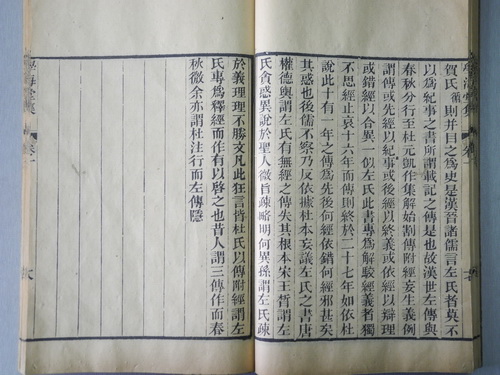 賀氏循則并目之為史是漢晉諸儒言左氏者莫不
以為紀事之書所謂載記之傳是也故漢世左傳與
春秋分行至杜元凱作集解始割傳附經妄生義例
謂傳或先經以紀事或後經以終義或依經以辯理
或錯經以合異一似左氏此書專為解駮經義者獨
不思經止哀十六年而傳則終於二十七年如依杜
說此十有一年之傳為先後何經依錯何經邪甚矣
其惑也後儒不察乃反依據杜本妄議左氏之書唐
權德輿謂左氏有無經之傳失其根本宋王晳謂左
氏貪惑異說於聖人微旨疏略明何異孫謂左氏疎
於義理理不勝文凡此狂言皆杜氏以傳附經謂左
氏專為釋經而作有以啓之也昔人謂三傳作而春
秋微余亦謂杜注行而左傳隱
學海堂集
卷一